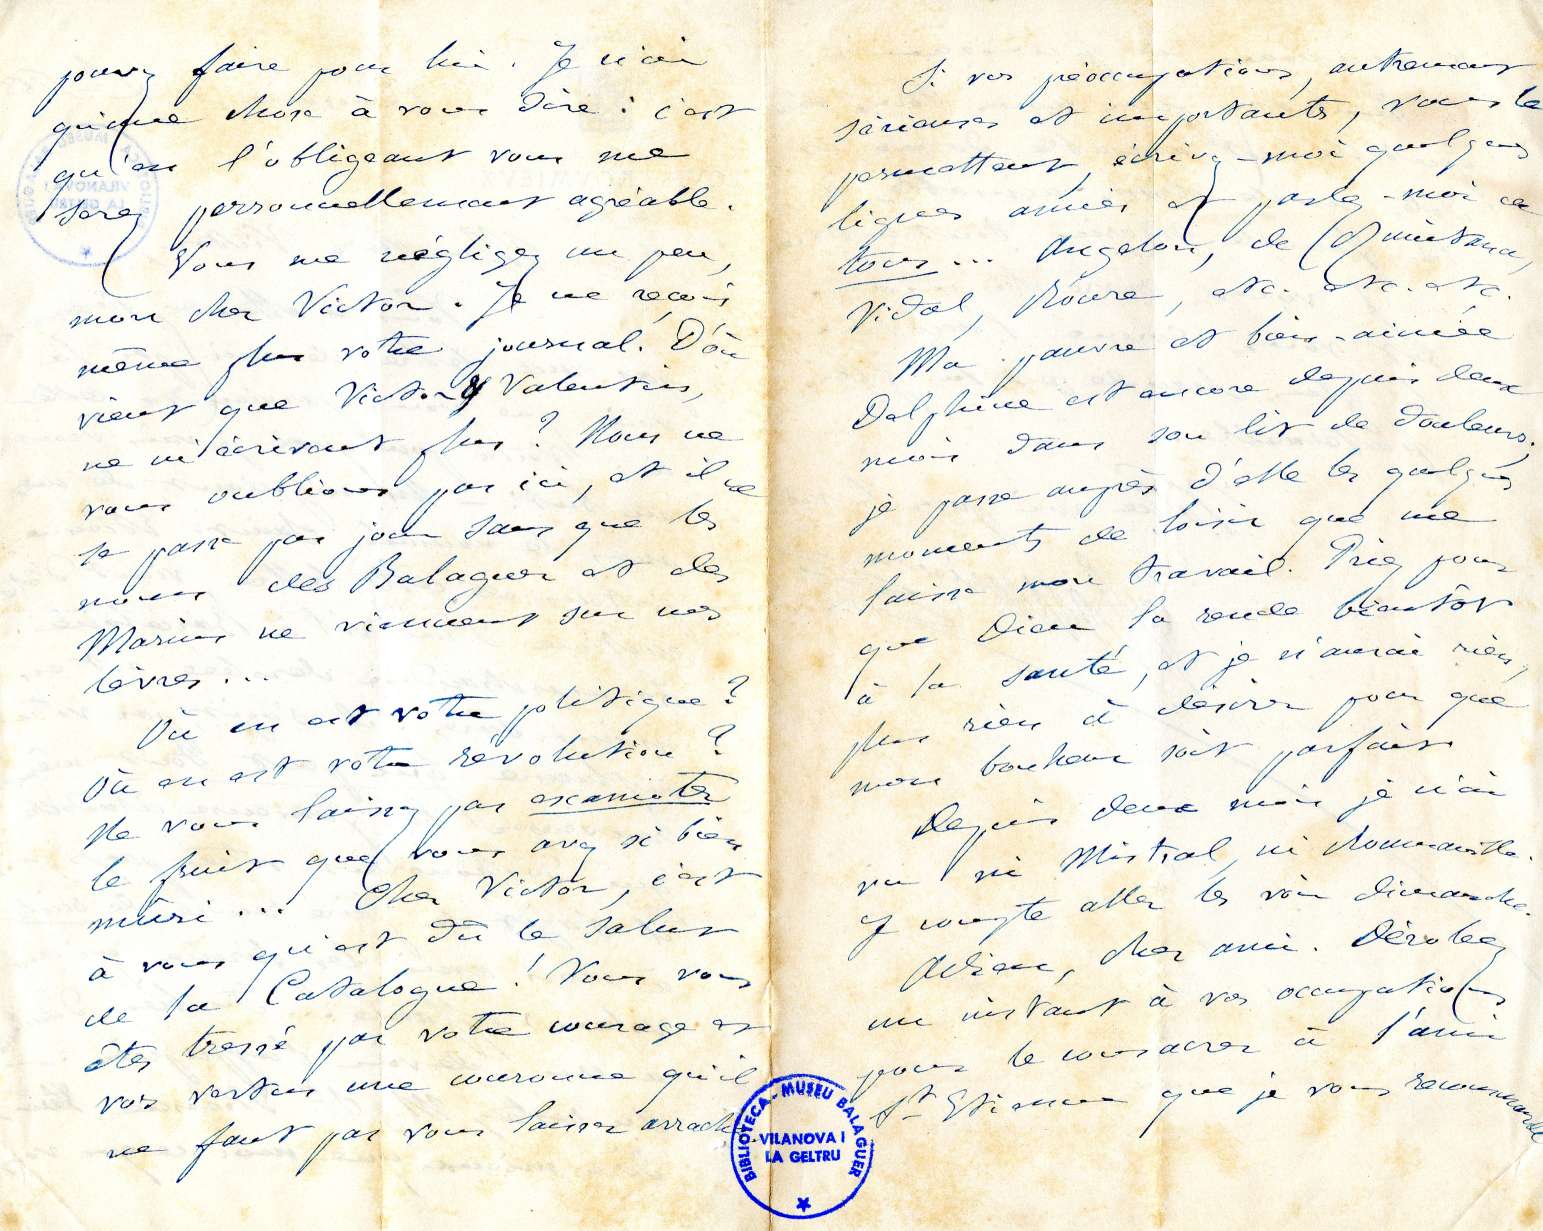 pouvez faire pour lui. Je n'ai
qu'une chose à vous dire : c'est
qu'en l'obligeant vous me
serez personnellement agréable.
Vous me négligez un peu,
mon cher Victor. Je ne reçois
même plus votre journal. D'où
vient que Victor y Valentin,
ne m'écrivent plus ? Nous ne
vous oublions pas ici, et il ne
se passe pas jour sans que les
noms des Balaguer et des
Marius ne viennent sur nos
lèvres...
Où en est votre politique ?
Où en est votre révolution ?
Ne vous laissez pas escamoter
le fruit que vous avez si bien
mûri... Cher Victor, c'est
à vous qu'est dû le salut
de la Catalogne ! Vous vous
êtes tressé par votre courage et
vos vertus une couronne qu'il
ne faut pas vous laisser arracher
Si vos préoccupations, autrement
sérieuses et importants, vous le
permettent, écrivez-moi quelques
lignes amies et parlez-moi de
tous... Angelon, de Quintana,
Vidal, Roure, etc. etc. etc.
Ma pauvre et bien-aimée
Delphine est encore depuis deux
mois dans son lit de douleurs;
je passe auprès d'elle les quelques
moments de loisir que me
laisse mon travail. Priez pour
que Dieu la rende bientôt
à la santé, et je n'aurai rien,
plus rien à désirer pour que
mon bonheur soit parfait.
Depuis deux mois je n'ai
vu ni Mistral, ni Roumanille.
J'y compte aller les voir dimanche.
Adieu, cher ami. Dérobez
un instant à vos occupations
pour le consacrer à l'ami
St Etienne que je vous recommande
BIBLIOTECA - MUSEU BALAGUER
VILANOVA I
LA GELTRU